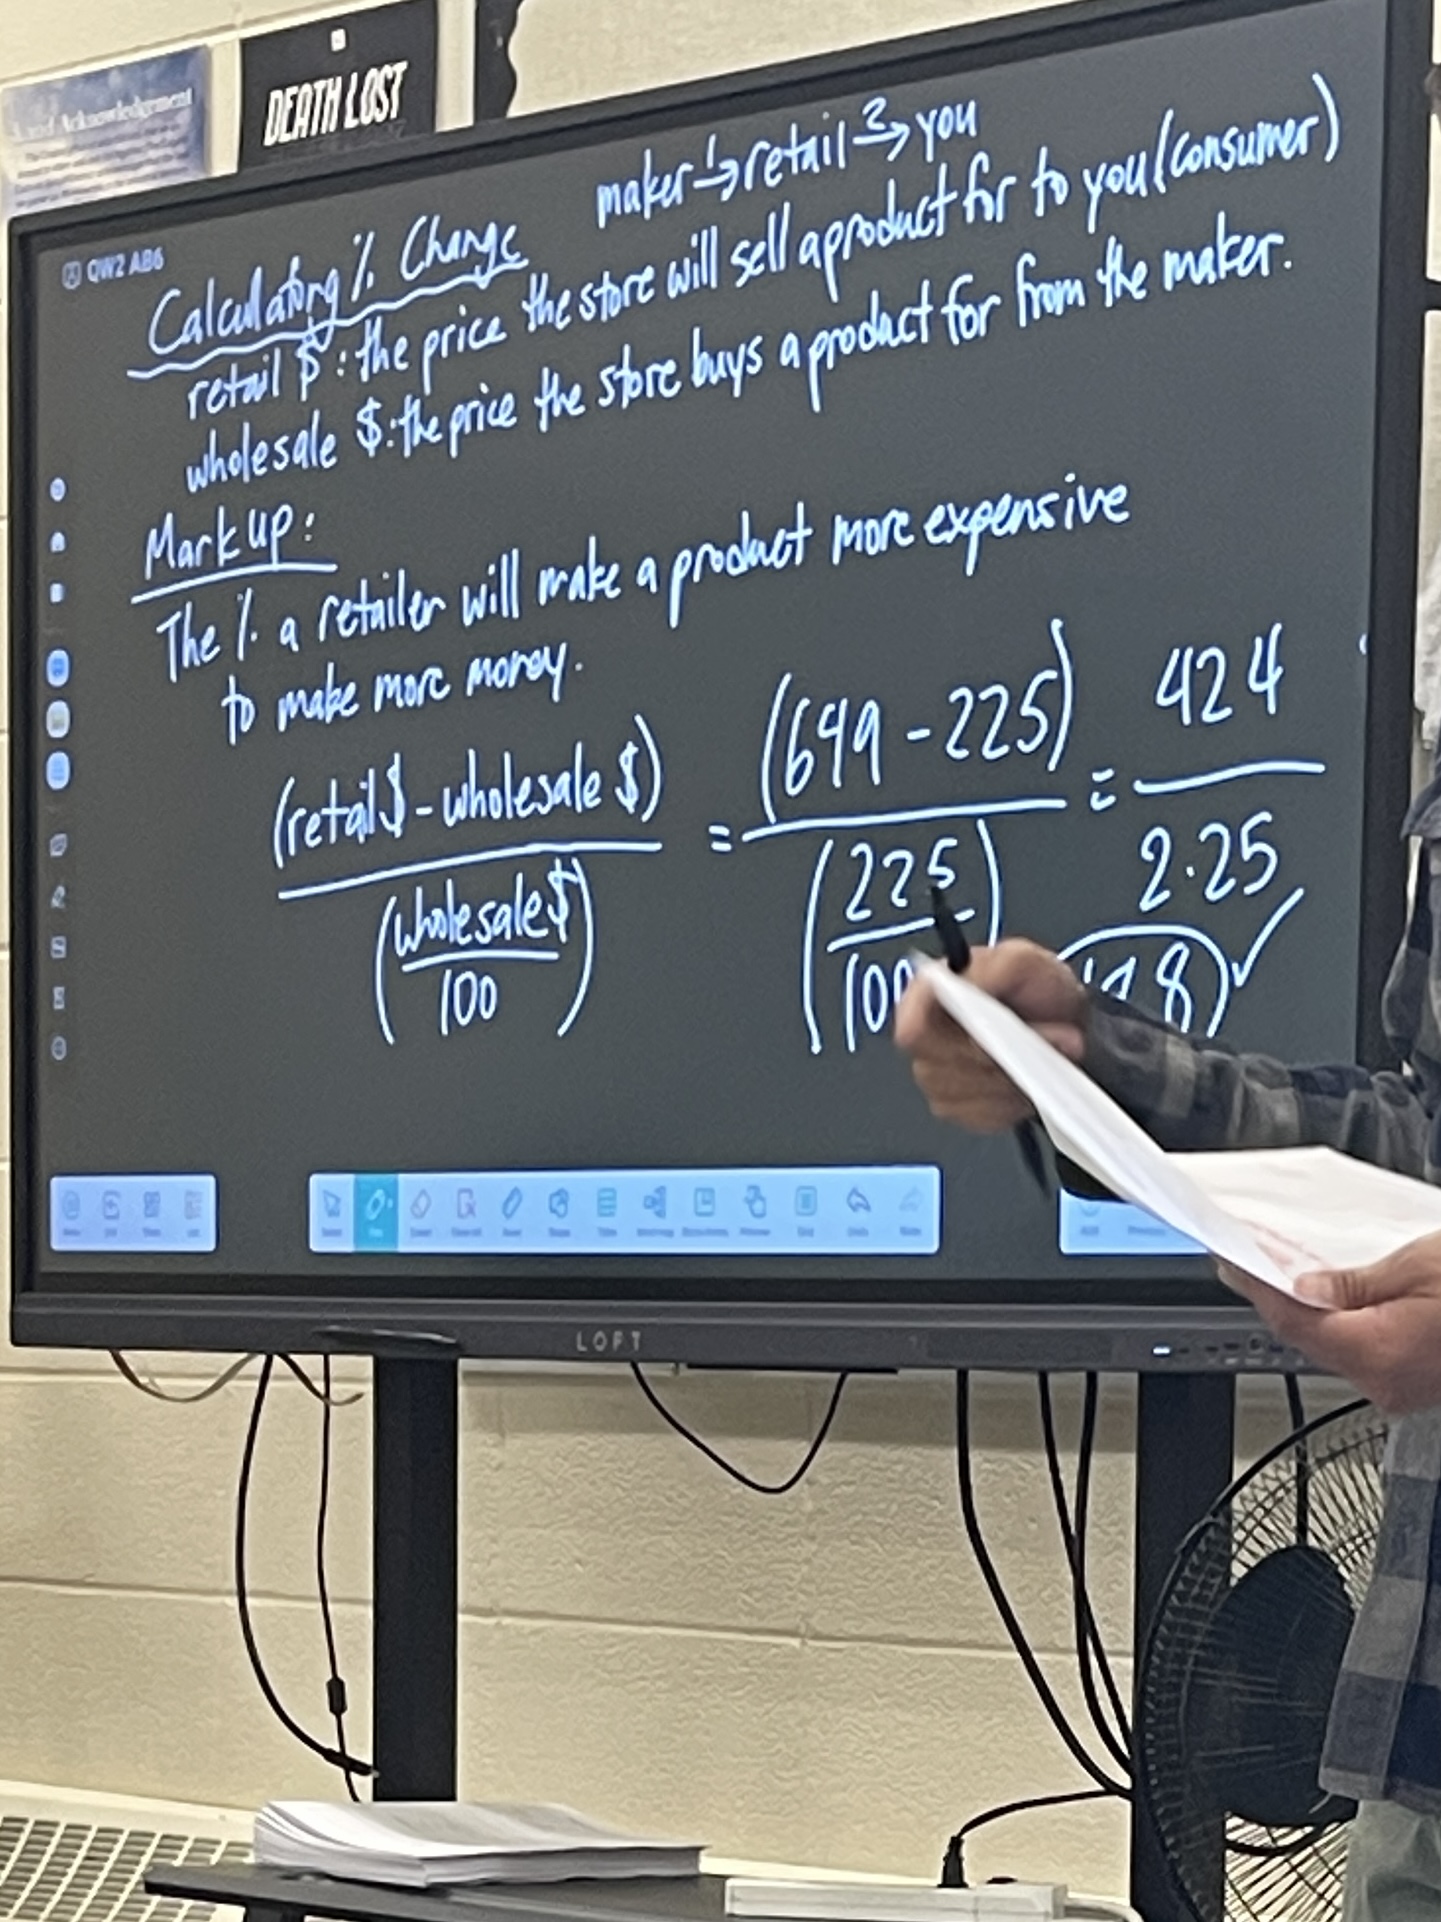 Acknowledgement
DEATH LOST
QW2 AB6
maker 1→ retail 2→ you
Calculating % Change
retail $: the price the store will sell a product for to you (consumer)
wholesale $: the price the store buys a product for from the maker.
Mark up:
The % a retailer will make a product more expensive
to make more money.
(retail $ - wholesale $) = (649 - 225) = 424
(wholesale $) (225 2.25
100) 100
LOFT